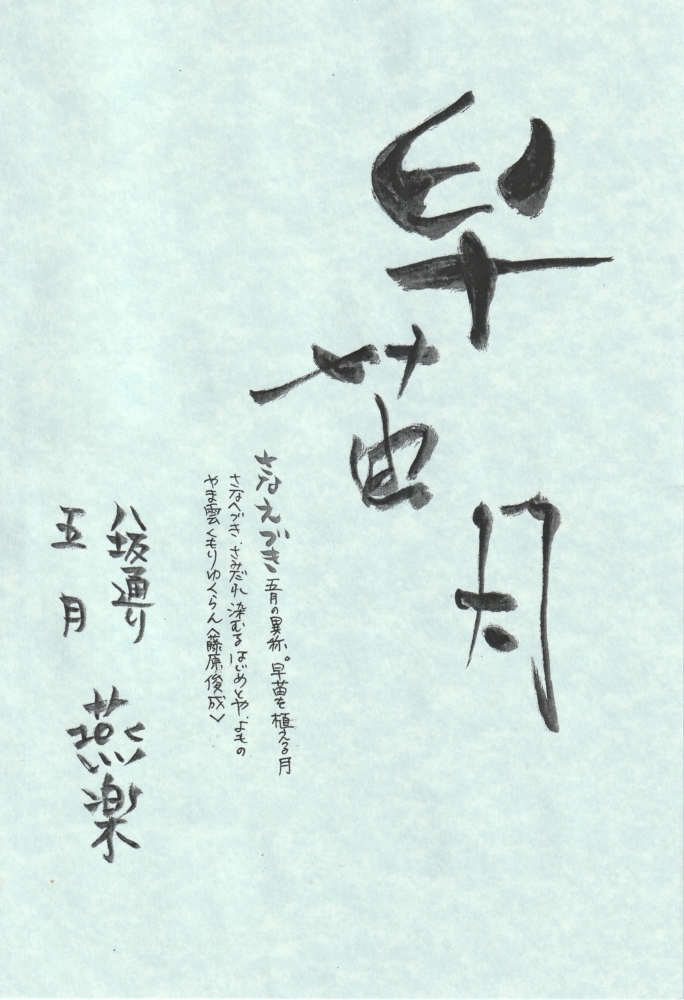 早苗月
さなえづき 五月の異称。早苗を植える月
さなへづき、さみだれ染むるはじめとや、よもの
やま雲くもりゆくらん〈藤原俊成〉
八坂通り
燕楽
五月